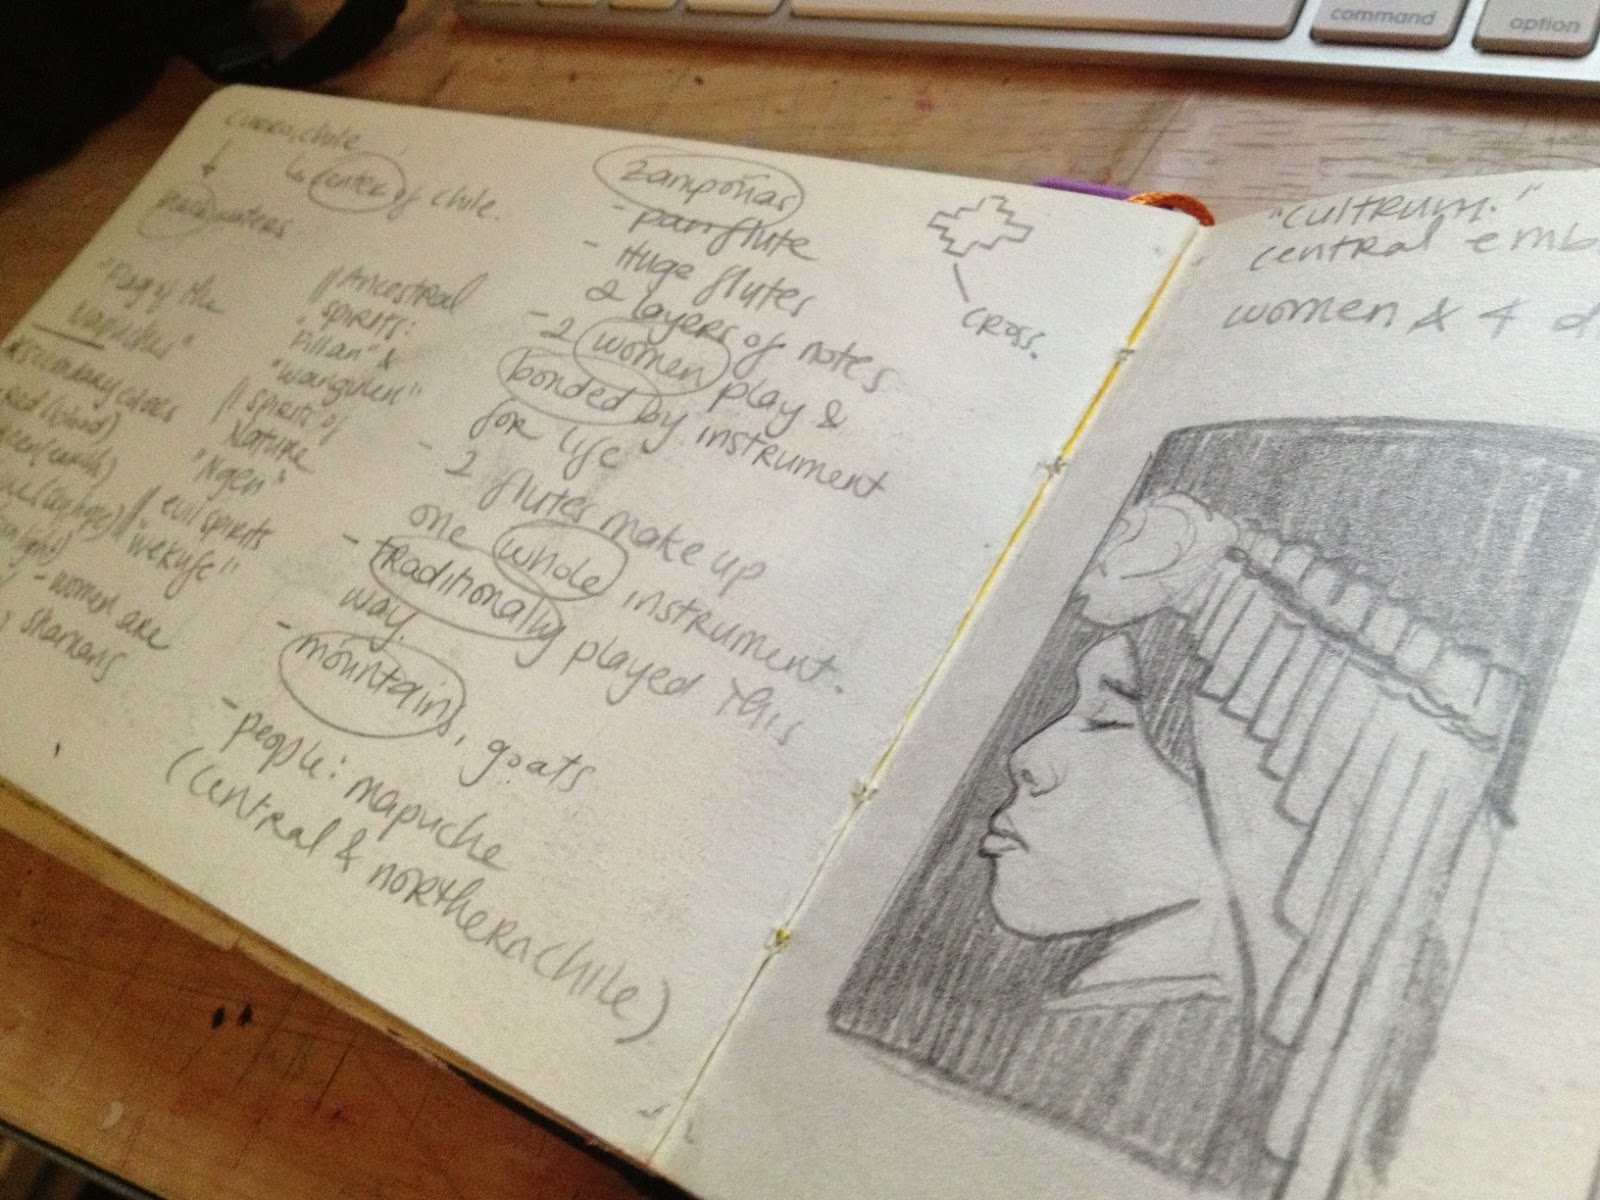 command
option
chile
↳ center of chile.
waters
"Flag of the
colors
(blood)
(earth)
light)
- women are
// Ancestral
spirits:
"Pillan" &
"wangulen"
// spirits of
Nature
"Ngen"
// evil spirits
"wekufe"
zamponas
- panflute
- Huge flutes
2 layers of notes
- 2 women play &
bonded by instrument
for life
- 2 flutes make up
one whole instrument.
- traditionally played this
way.
- mountains, goats
- people: mapuche
(central & northern chile)
cross.
"cultrum."
central emb
women & 4 d